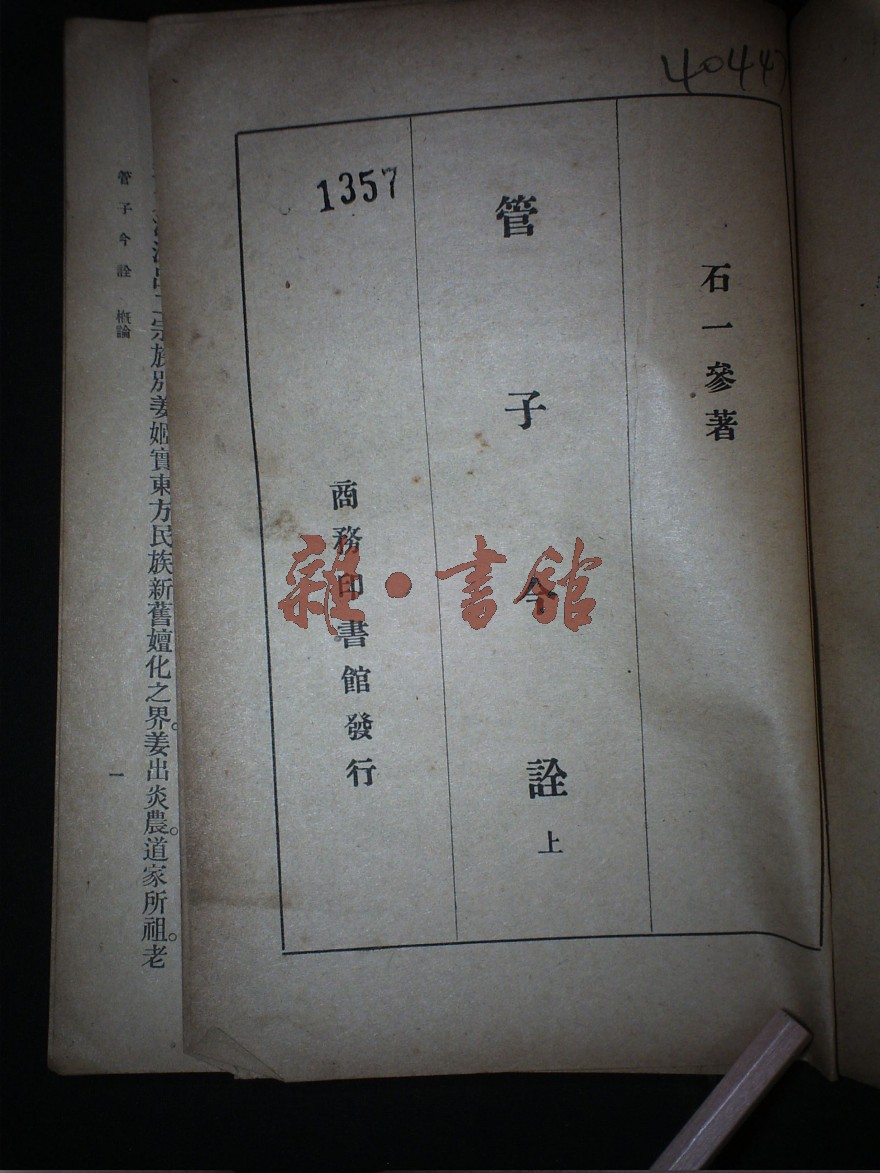 4044
1357
石一參著
管子今詮上
商務印書館發行
雜·書館
宗族別姜姬實東方民族新舊嬗化之界。姜出炎農。道家所祖。老
管子今詮 概論
一